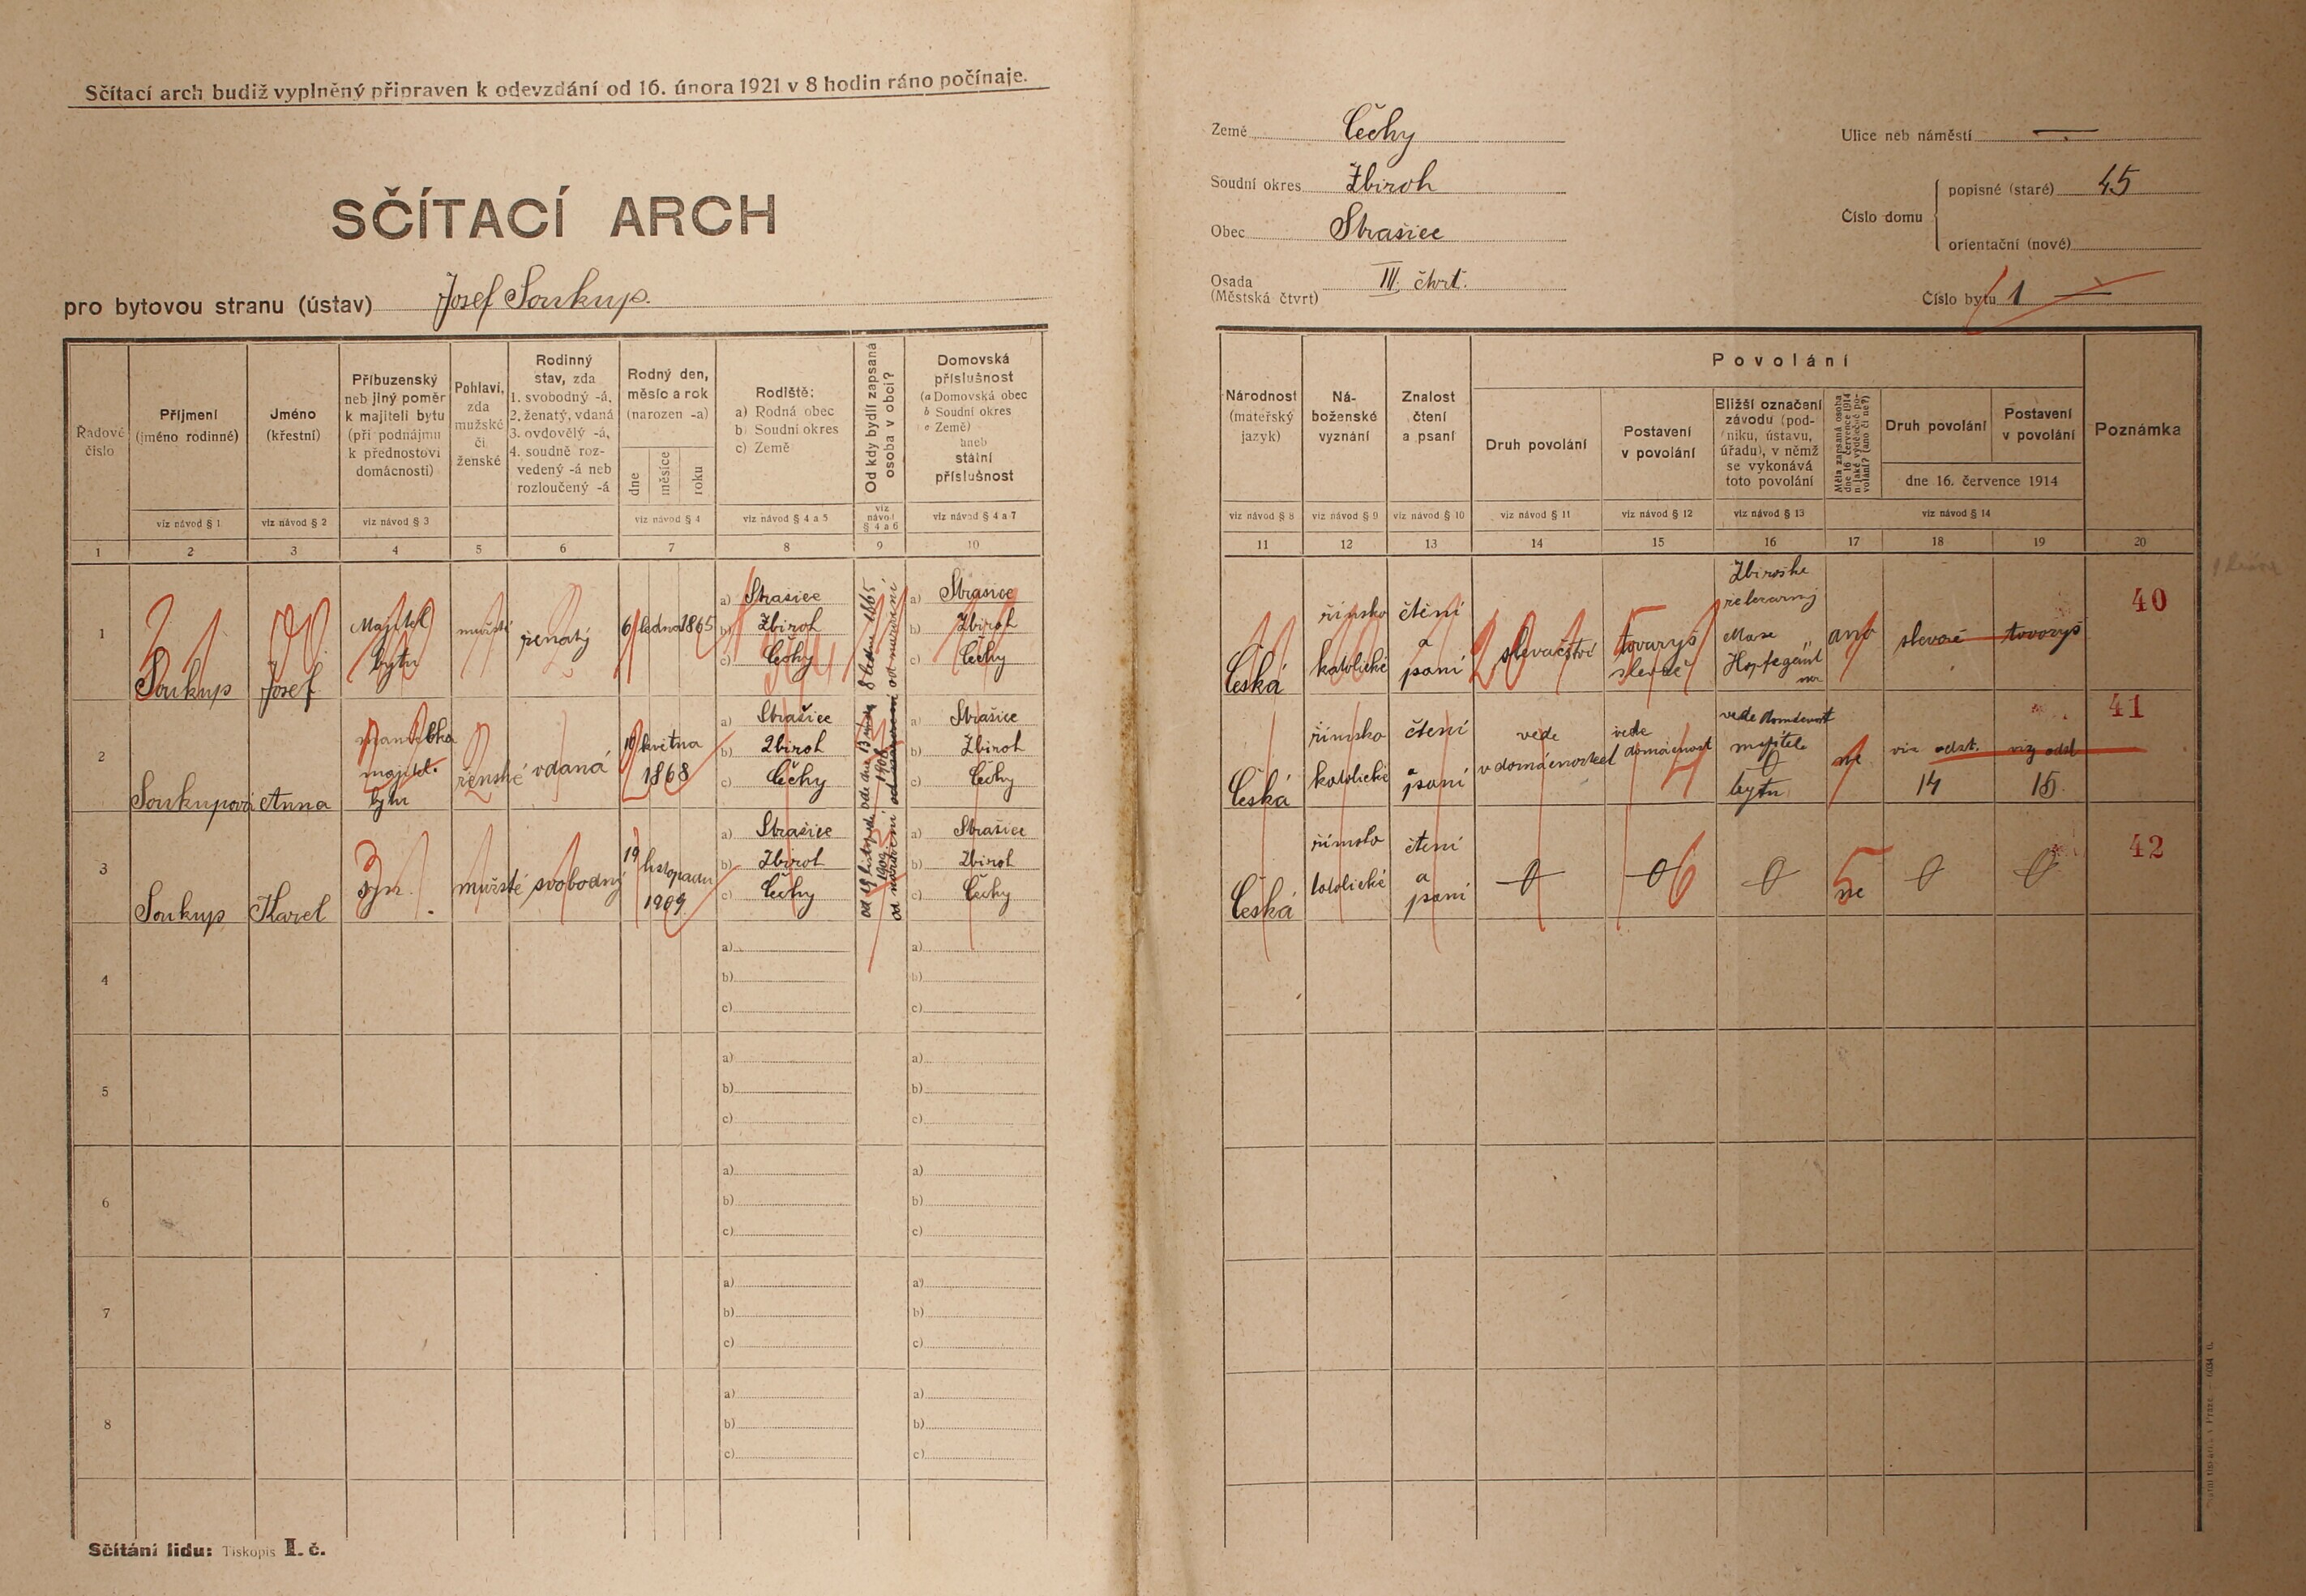 Sčítací arch budiž vyplněný připraven k odevzdání od 16. února 1921 v 8 hodin ráno počínaje.
SČÍTACÍ ARCH
pro bytovou stranu (ústav) Josef Soukup.
Země Čechy
Soudní okres Zbiroh
Obec Strašice
Osada III. čtvrt.
(Městská čtvrt)
Ulice neb náměstí —
Číslo domu
popisné (staré) 45
orientační (nové)
Číslo bytu 1 —
Řadové číslo
Příjmení (jméno rodinné)
Jméno (křestní)
Příbuzenský neb jiný poměr k majiteli bytu (při podnájmu k přednostovi domácnosti)
Pohlaví, zda mužské či ženské
Rodinný stav, zda 1. svobodný -á, 2. ženatý, vdaná 3. ovdovělý -á, 4. soudně rozvedený -á neb rozloučený -á
Rodný den, měsíc a rok (narozen -a)
dne měsíce roku
Rodiště:
a) Rodná obec
b) Soudní okres
c) Země
Od kdy bydlí zapsaná osoba v obci?
Domovská příslušnost
(a Domovská obec
b Soudní okres
c Země)
aneb stální příslušnost
viz návod § 1
viz návod § 2
viz návod § 3
viz návod § 4
viz návod § 4 a 5
viz návod § 4 a 6
viz návod § 4 a 7
1 2 3 4 5 6 7 8 9 10
1 Soukup Josef Majitel bytu mužské ženatý 6 ledna 1865
a) Strašice
b) Zbiroh
c) Čechy
a) Strašice
b) Zbiroh
c) Čechy
2 Soukupová Anna manželka majitel. bytu ženské vdaná května 1868
a) Strašice
b) Zbiroh
c) Čechy
a) Strašice
b) Zbiroh
c) Čechy
3 Soukup Karel syn. mužské svobodný 19 listopadu 1909
a) Strašice
b) Zbiroh
c) Čechy
od narození
a) Strašice
b) Zbiroh
c) Čechy
4 a) a)
b) b)
c) c)
5 a) a)
b) b)
c) c)
6 a) a)
b) b)
c) c)
7 a) a)
b) b)
c) c)
8 a) a)
b) b)
c) c)
Sčítání lidu: Tiskopis I. č.
Národnost (mateřský jazyk)
Náboženské vyznání
Znalost čtení a psaní
Povolání
Druh povolání
Postavení v povolání
Bližší označení závodu (podniku, ústavu, úřadu), v němž se vykonává toto povolání
Měla zapsaná osoba dne 16. července 1914 nějaké výdělečné povolání? (ano či ne?)
Druh povolání
Postavení v povolání
dne 16. července 1914
Poznámka
viz návod § 8
viz návod § 9
viz návod § 10
viz návod § 11
viz návod § 12
viz návod § 13
viz návod § 14
11 12 13 14 15 16 17 18 19 20
Česká římsko katolické čtění a psaní slevačství tovaryš slevač Zbirožské železárny Max ano slevač tovaryš 40
Česká římsko katolické čtení a psaní vede v domácnost vede domácnost vede domácnost majitele bytu ne viz odst. 14 viz odst 15. 41
Česká římsko katolické čtení a psaní 0 0 0 ne 0 0 42